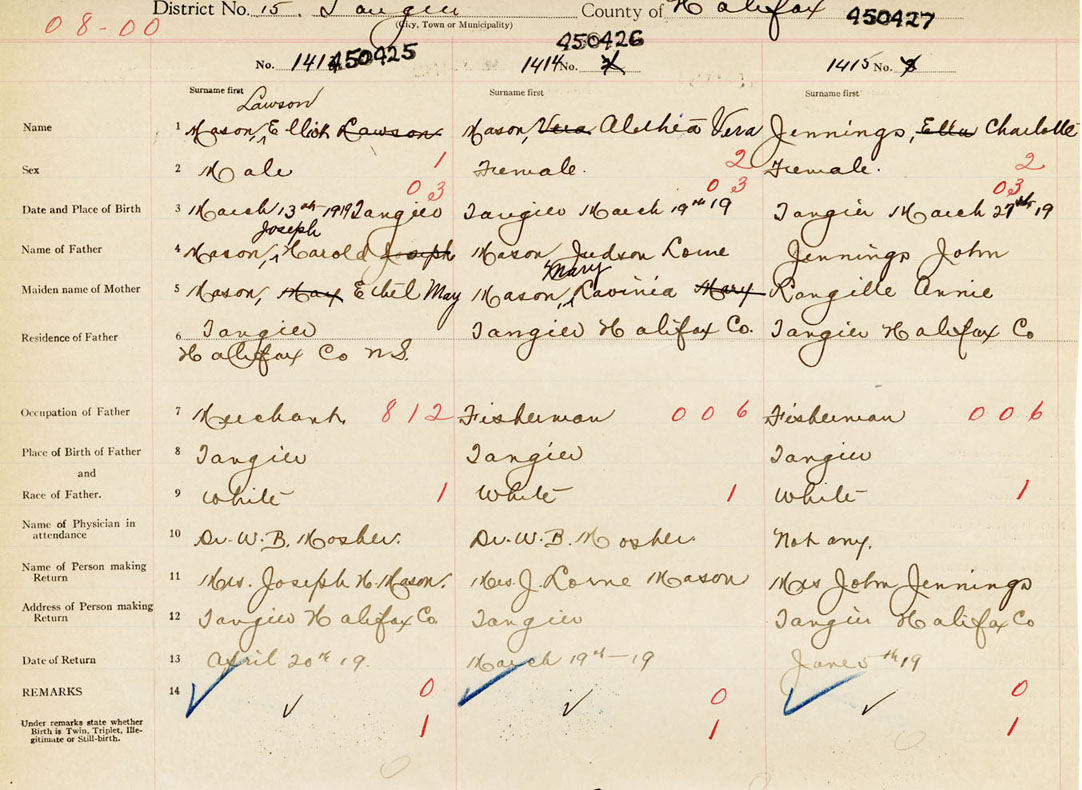 District No. 15. Tangier County of Halifax 450427
(City, Town or Municipality)
08-00
450426
No. 141 450425 1414 No. 1415 No. 8
Surname first Surname first Surname first
Lawson
Name 1 Mason, Elliot Lawson Mason, Vera Alethea Vera Jennings, Etta Charlotte
1 2 2
Sex 2 Male Female. Female.
03 03 03
Date and Place of Birth 3 March 13th-1919 Tangier Tangier March 19th 19 Tangier March 27th 19
Joseph
Name of Father 4 Mason, Harold Joseph Mason Judson Lorne Jennings John
Mary
Maiden name of Mother 5 Mason, May Ethel May Mason, Lavinia Mary Langille Annie
Residence of Father 6 Tangier Tangier Halifax Co. Tangier Halifax Co
Halifax Co N.S.
Occupation of Father 7 Merchant 812 Fisherman 006 Fisherman 006
Place of Birth of Father 8 Tangier Tangier Tangier
and
Race of Father. 9 White 1 White 1 White 1
Name of Physician in
attendance 10 Dr. W. B. Mosher. Dr. W. B. Mosher. Not any.
Name of Person making
Return 11 Mrs. Joseph H. Mason. Mrs. J. Lorne Mason Mrs John Jennings
Address of Person making
Return 12 Tangier Halifax Co. Tangier Tangier Halifax Co
Date of Return 13 April 20th 19. March 19th-19 June 5th 19
REMARKS 14 0 0 0
Under remarks state whether
Birth is Twin, Triplet, Ille-
gitimate or Still-birth. 1 1 1